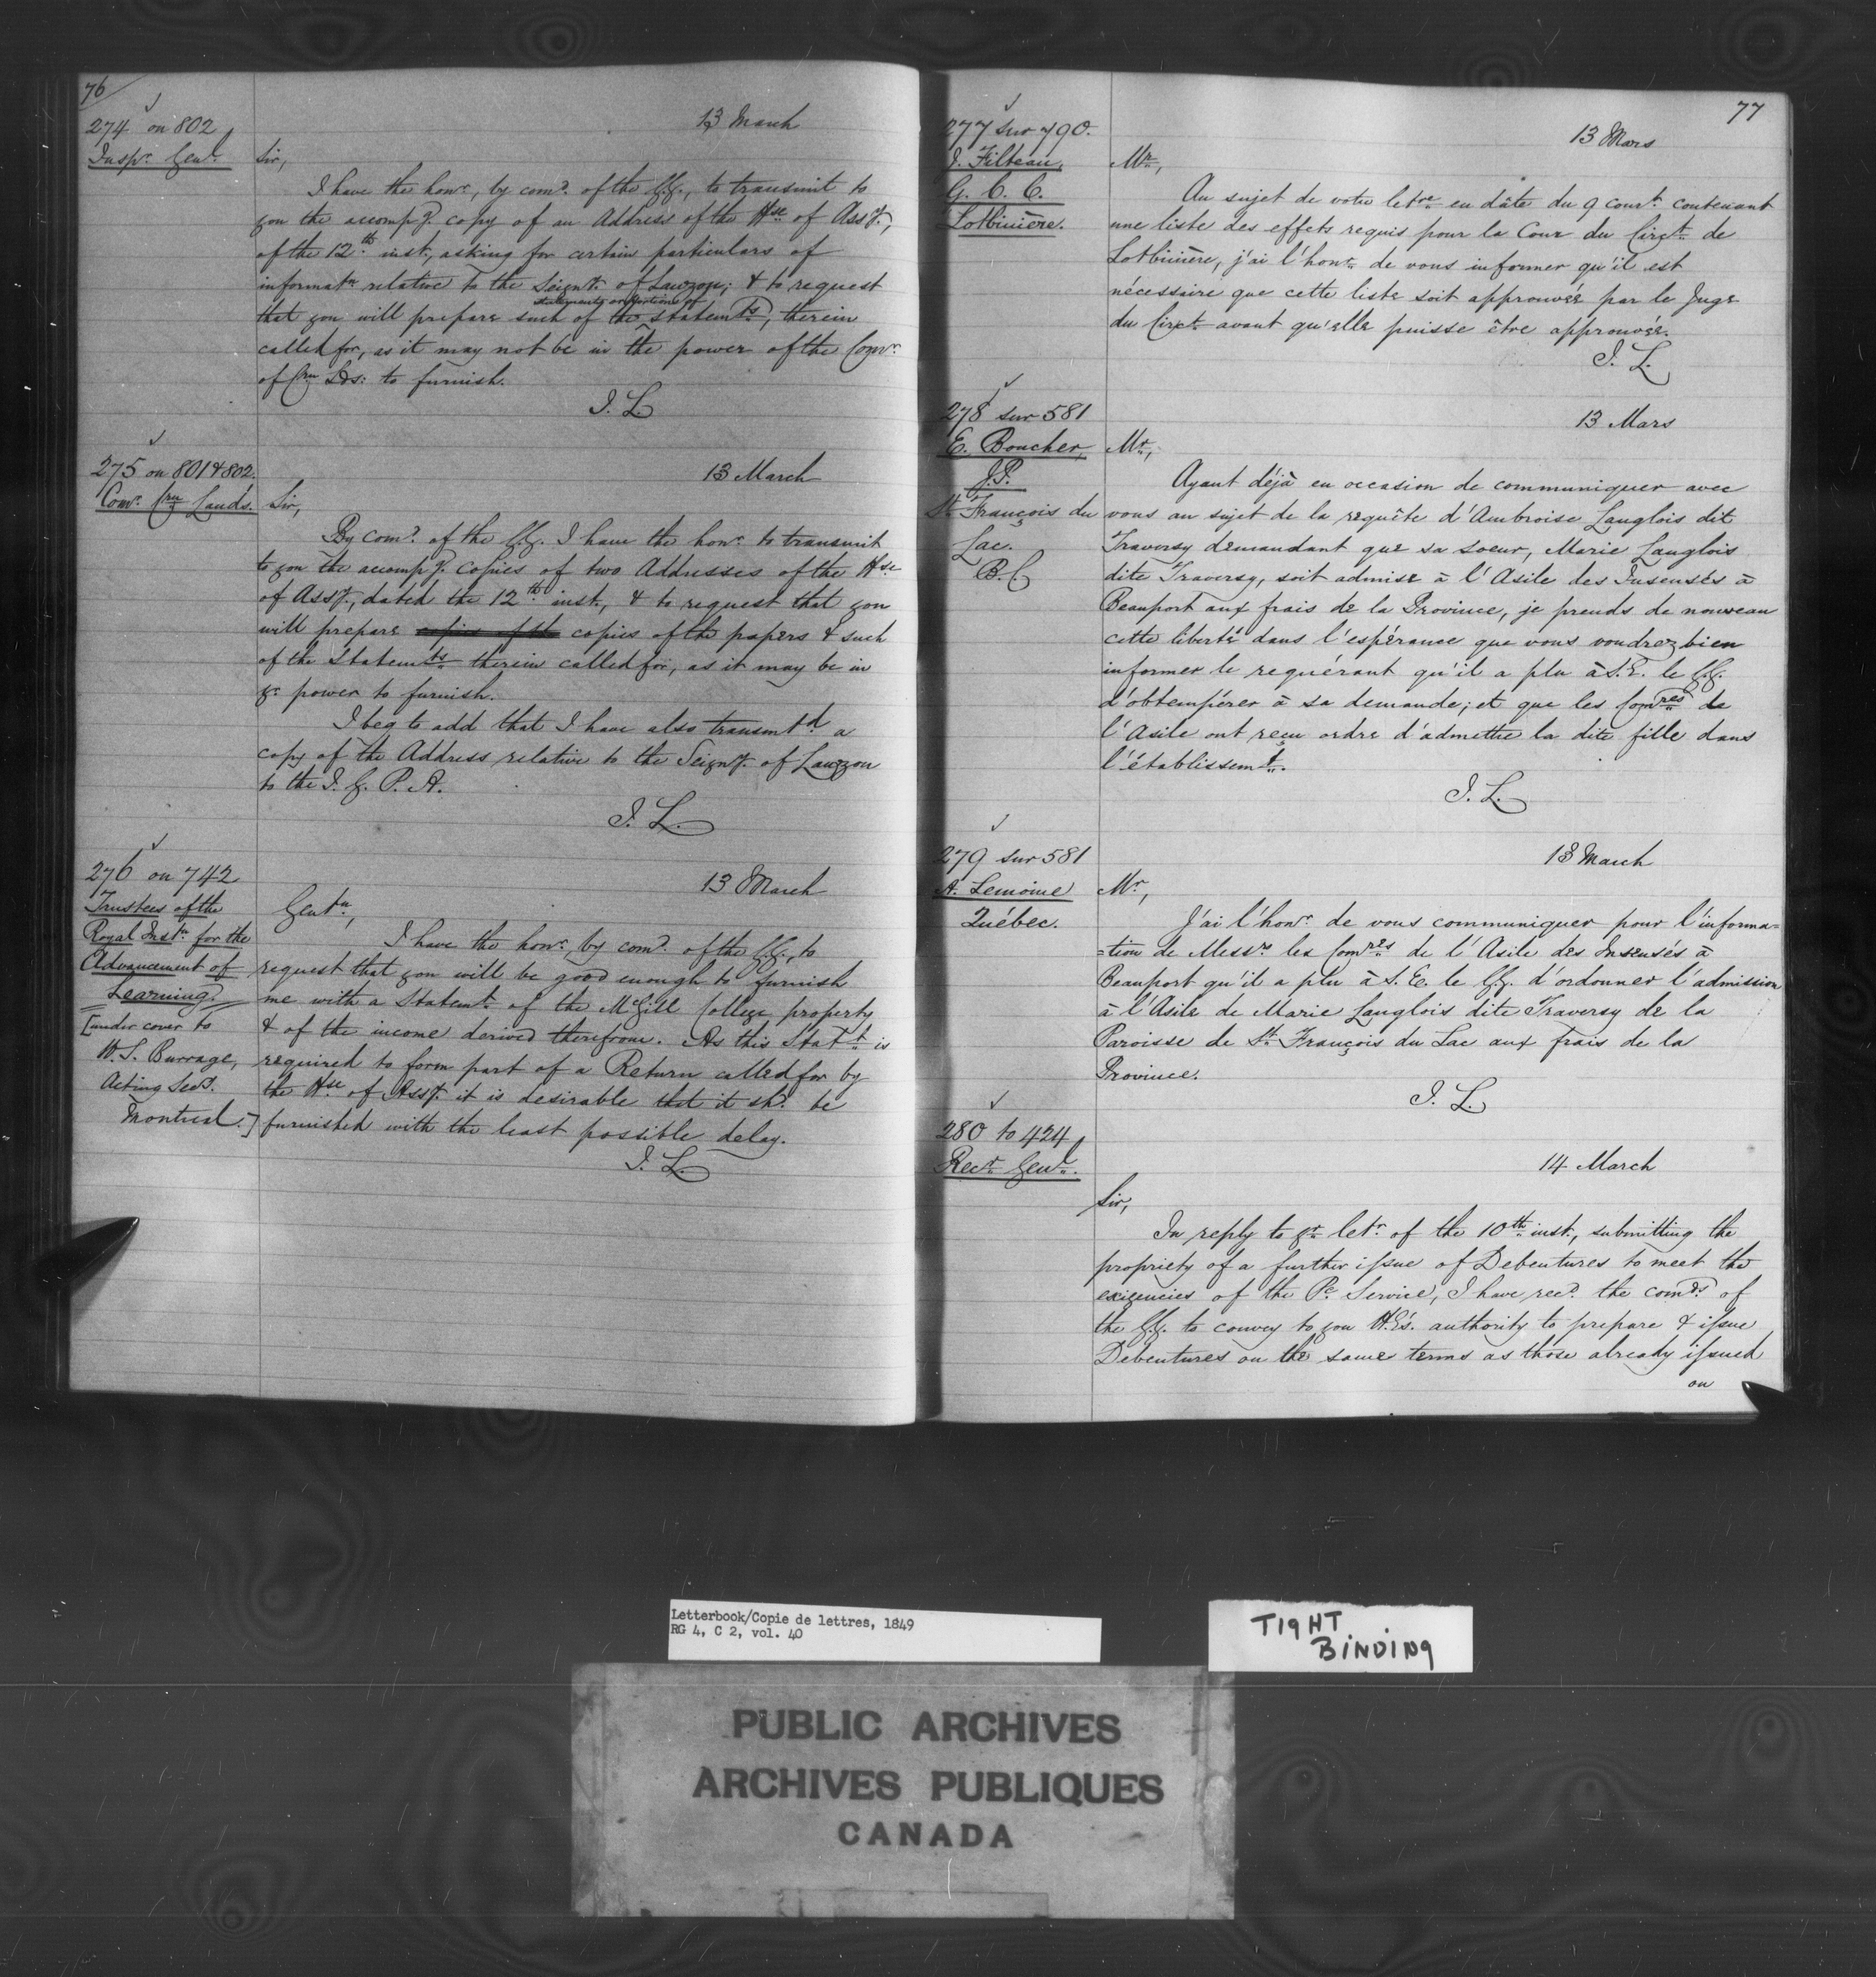 76
274 on 802
Inspr. Genl.
13 March
Sir,
I have the honr., by comd. of the G.G., to transmit to
you the accompg. copy of an Address of the Hse of Assy.,
of the 12th inst., asking for certain particulars of
informatn relative to the Seigny. of Lauzon; & to request
statements or portions of
that you will prepare such of the statemts, therein
called for, as it may not be in the power of the Comr.
of Crn Lds: to furnish.
J. L.
275 on 801 & 802.
Comr. Crn Lands.
13 March
Sir,
By comd. of the G.G. I have the honr. to transmit
to you the accompg. copies of two Addresses of the Hse
of Assy., dated the 12th inst., & to request that you
will prepare copies of the copies of the papers & such
of the Statemts therein called for, as it may be in
yr. power to furnish.
I beg to add that I have also transmtd a
copy of the Address relative to the Seigny. of Lauzon
to the I. G. P. A.
J. L.
276 on 742
Trustees of the
Royal Instn for the
Advancement of
Learning.
[under cover to
W. S. Burrage,
Acting Secy.
Montreal.]
13 March
Gentn,
I have the honr., by comd. of the G.G., to
request that you will be good enough to furnish
me with a Statemt. of the McGill College property
& of the income derived therefrom. As this Statt. is
required to form part of a Return called for by
the Hse of Assy. it is desirable that it shd. be
furnished with the least possible delay.
J. L.
77
277 sur 790.
J. Filteau,
G. C. C.
Lotbinière.
13 Mars
Mr,
Au sujet de votre letre en dâte du 9 court. contenant
une liste des effets requis pour la Cour du Circt. de
Lotbinière, j'ai l'honr. de vous informer qu'il est
nécessaire que cette liste soit approuvée par le Juge
du Circt. avant qu'elle puisse être approuvée.
J. L.
278 sur 581
E. Boucher,
J.P.
St François du
Lac.
B. C.
13 Mars
Mr,
Ayant déjà eu occasion de communiquer avec
vous au sujet de la requête d'Ambroise Langlois dit
Traversy demandant que sa soeur, Marie Langlois
dite Traversy, soit admise à l'Asile des Insensés à
Beauport aux frais de la Province, je prends de nouveau
cette liberté dans l'espérance que vous voudrez bien
informer le requérant qu'il a plu à S.E. le G.G.
d'obtempérer à sa demande; et que les Comres de
l'Asile ont reçu ordre d'admettre la dite fille dans
l'établissemt.
J. L.
279 sur 581
A. Lemoine
Québec.
13 March
Mr,
J'ai l'honr. de vous communiquer pour l'informa=
=tion de Messrs les Comres de l'Asile des Insensés à
Beauport qu'il a plu à S. E. le G.G. d'ordonner l'admission
à l'Asile de Marie Langlois dite Traversy de la
Paroisse de St. François du Lac aux frais de la
Province.
J. L.
280 to 424
Recr. Genl.
14 March
Sir,
In reply to yr. letr. of the 10th inst., submitting the
propriety of a further issue of Debentures to meet the
exigencies of the Pc. Service, I have recd. the comds. of
the G.G. to convey to you H.E's. authority to prepare & issue
Debentures on the same terms as those already issued
on
Letterbook/Copie de lettres, 1849
RG 4, C 2, vol. 40
TIGHT
BINDING
PUBLIC ARCHIVES
ARCHIVES PUBLIQUES
CANADA